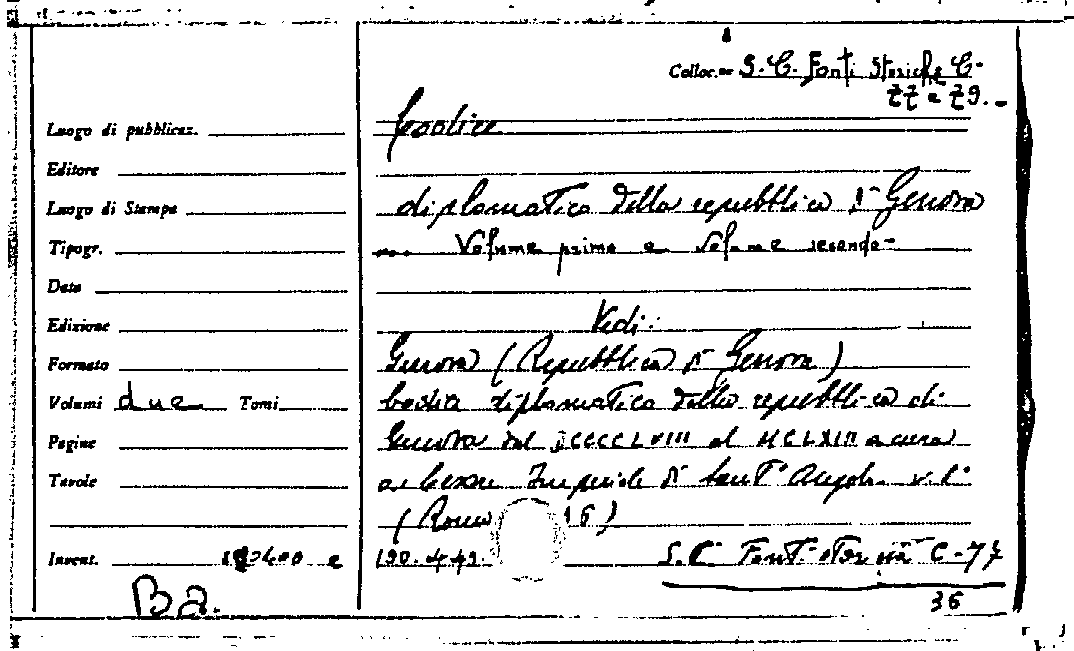 Colloc.ne S. C. Fonti Storiche C-
77 e 79.-
Luogo di pubblicaz.
Codice
Editore
Luogo di Stampa
diplomatico della repubblica di Genova
Tipogr.
Volume primo e Volume secondo-
Data
Edizione
Vedi:
Formato
Genova (Repubblica di Genova)
Volumi due Tomi
Codice diplomatico della repubblica di
Pagine
Genova dal DCCCCLVIII al MCLXIII a cura
Tavole
Cesare Imperiale di Sant' Angelo. v. 1°
(Roma
Invent.
e
190.449.
S.C. Fonti C-77
36
Ba.